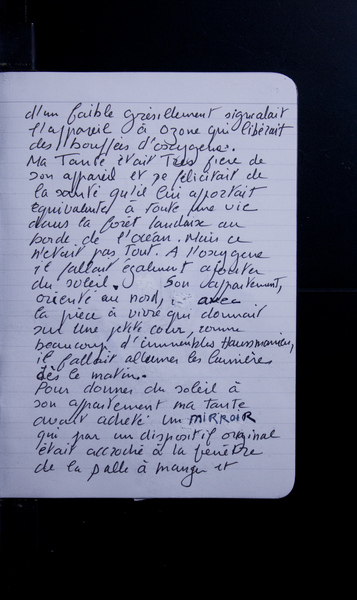 d'un faible grésillement signalait
l'appareil à Ozone qui libérait
des bouffées d'oxygène.
Ma Tante était Très fière de
son appareil et se félicitait de
la santé qu'il lui apportait
équivalente à toute une vie
dans la forêt landaise au
bord de l'océan. Mais ce
n'était pas tout. A l'oxygène
il fallait également ajouter
du soleil. Son appartement,
orienté au nord, avec
la pièce à vivre qui donnait
sur une petite cour, comme
beaucoup d'immeubles Haussmanniens,
il fallait allumer les lumières
dès le matin.
Pour donner du soleil à
son appartement ma tante
avait acheté un MIRROIR
qui par un dispositif original
était accroché à la fenêtre
de la salle à manger et